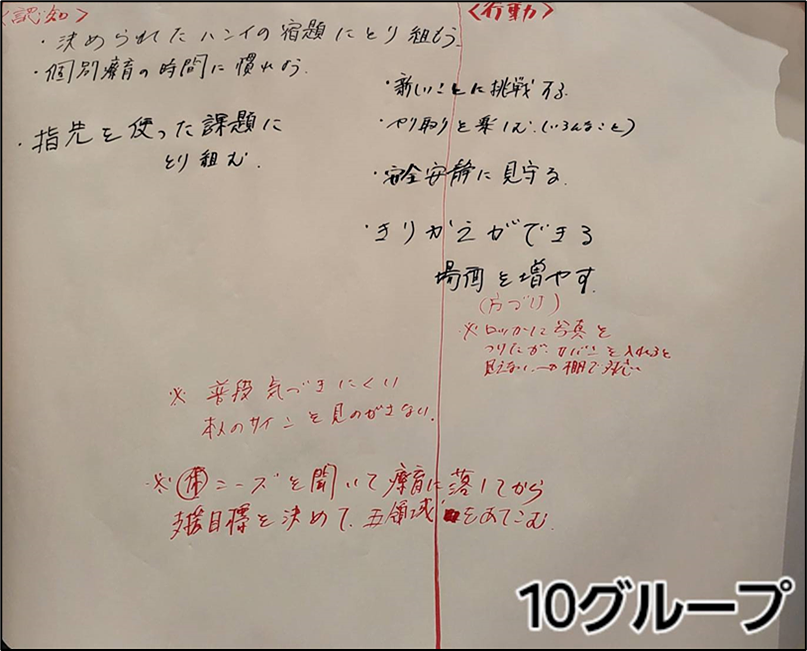 <認知>
・決められたハンイの宿題にとり組もう。
・個別療育の時間に慣れよう.
・指先を使った課題に
とり組む.
<行動>
・新しいことに挑戦する
・やり取りを楽しむ.(いろんなこと)
・安全安静に見守る.
・きりかえができる
場面を増やす.
(片づけ)
※ロッカーに写真を
つけたが、カバンを入れると
見えない→棚で対応
※ 普段気づきにくい
本人のサインを見のがさない.
※ ニーズを聞いて療育に落してから
支援目標を決めて、五領域をあてこむ.
10グループ